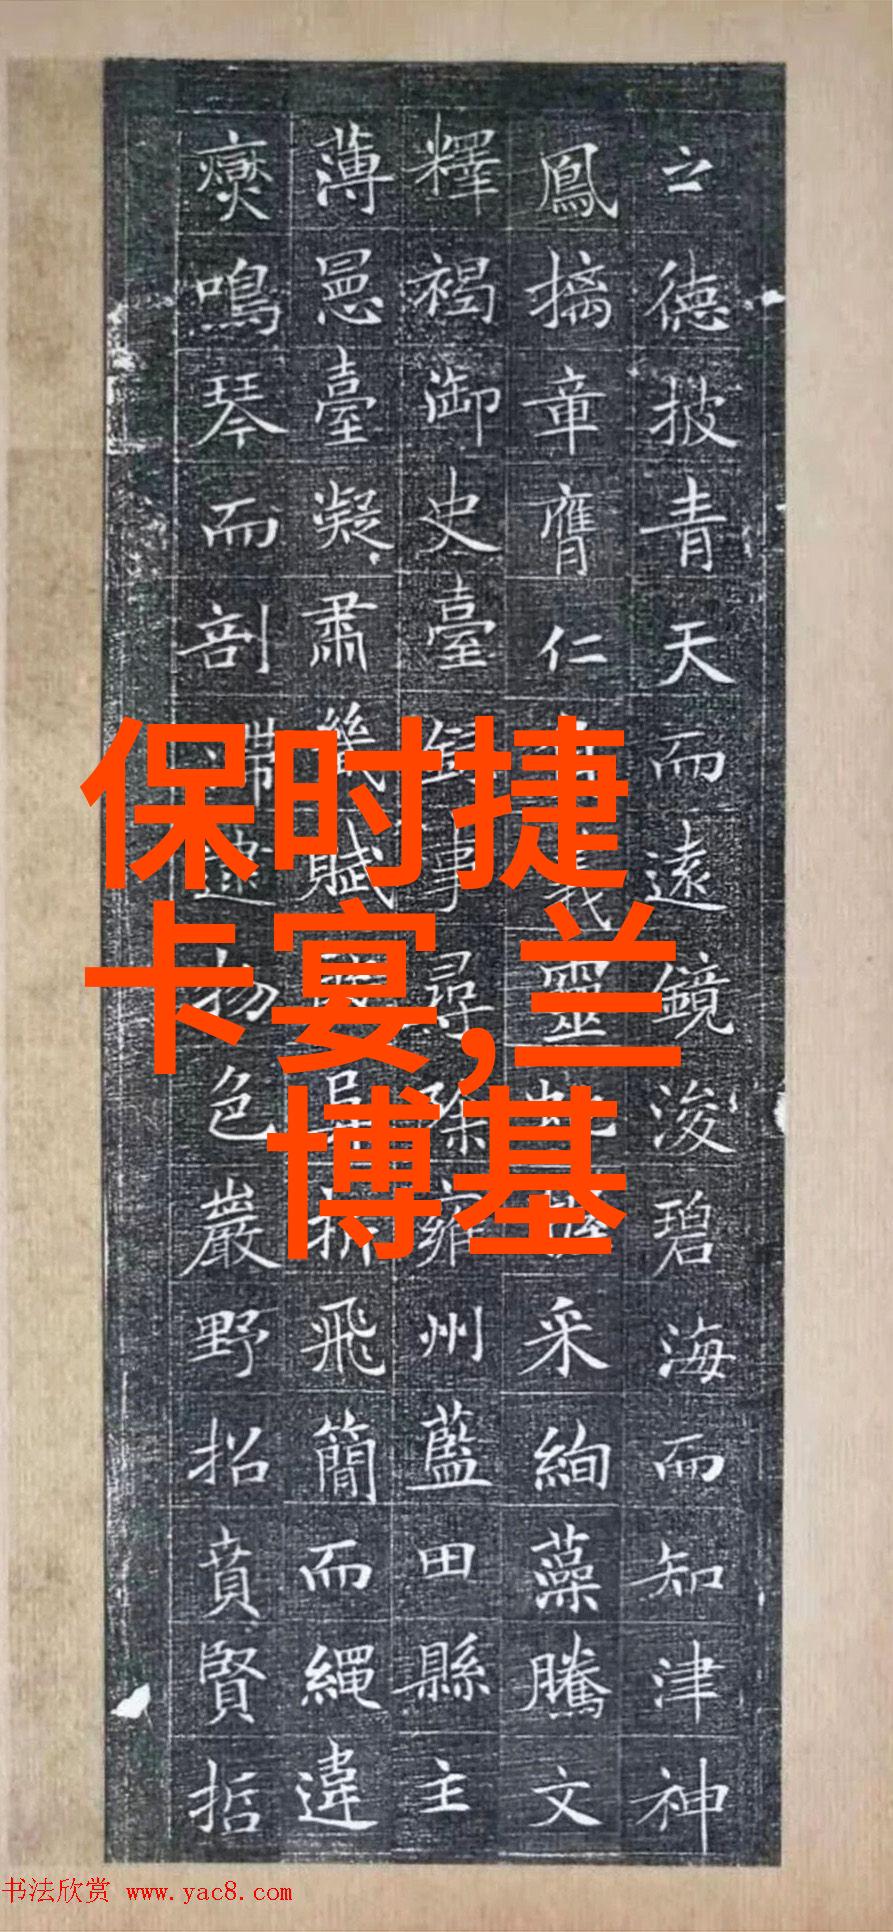 之德披青天而遠鏡浚碧海而知津神
鳳摛章膺仁義靈采絢藻騰文
釋褐御史臺事尋除雍州藍田縣主
薄臺凝肅賦折飛簡而繩違
鳴琴而剖滯逮物色巖野招賁賢哲
保时捷
卡宴,兰
博基
书法欣赏 www.yac8.com